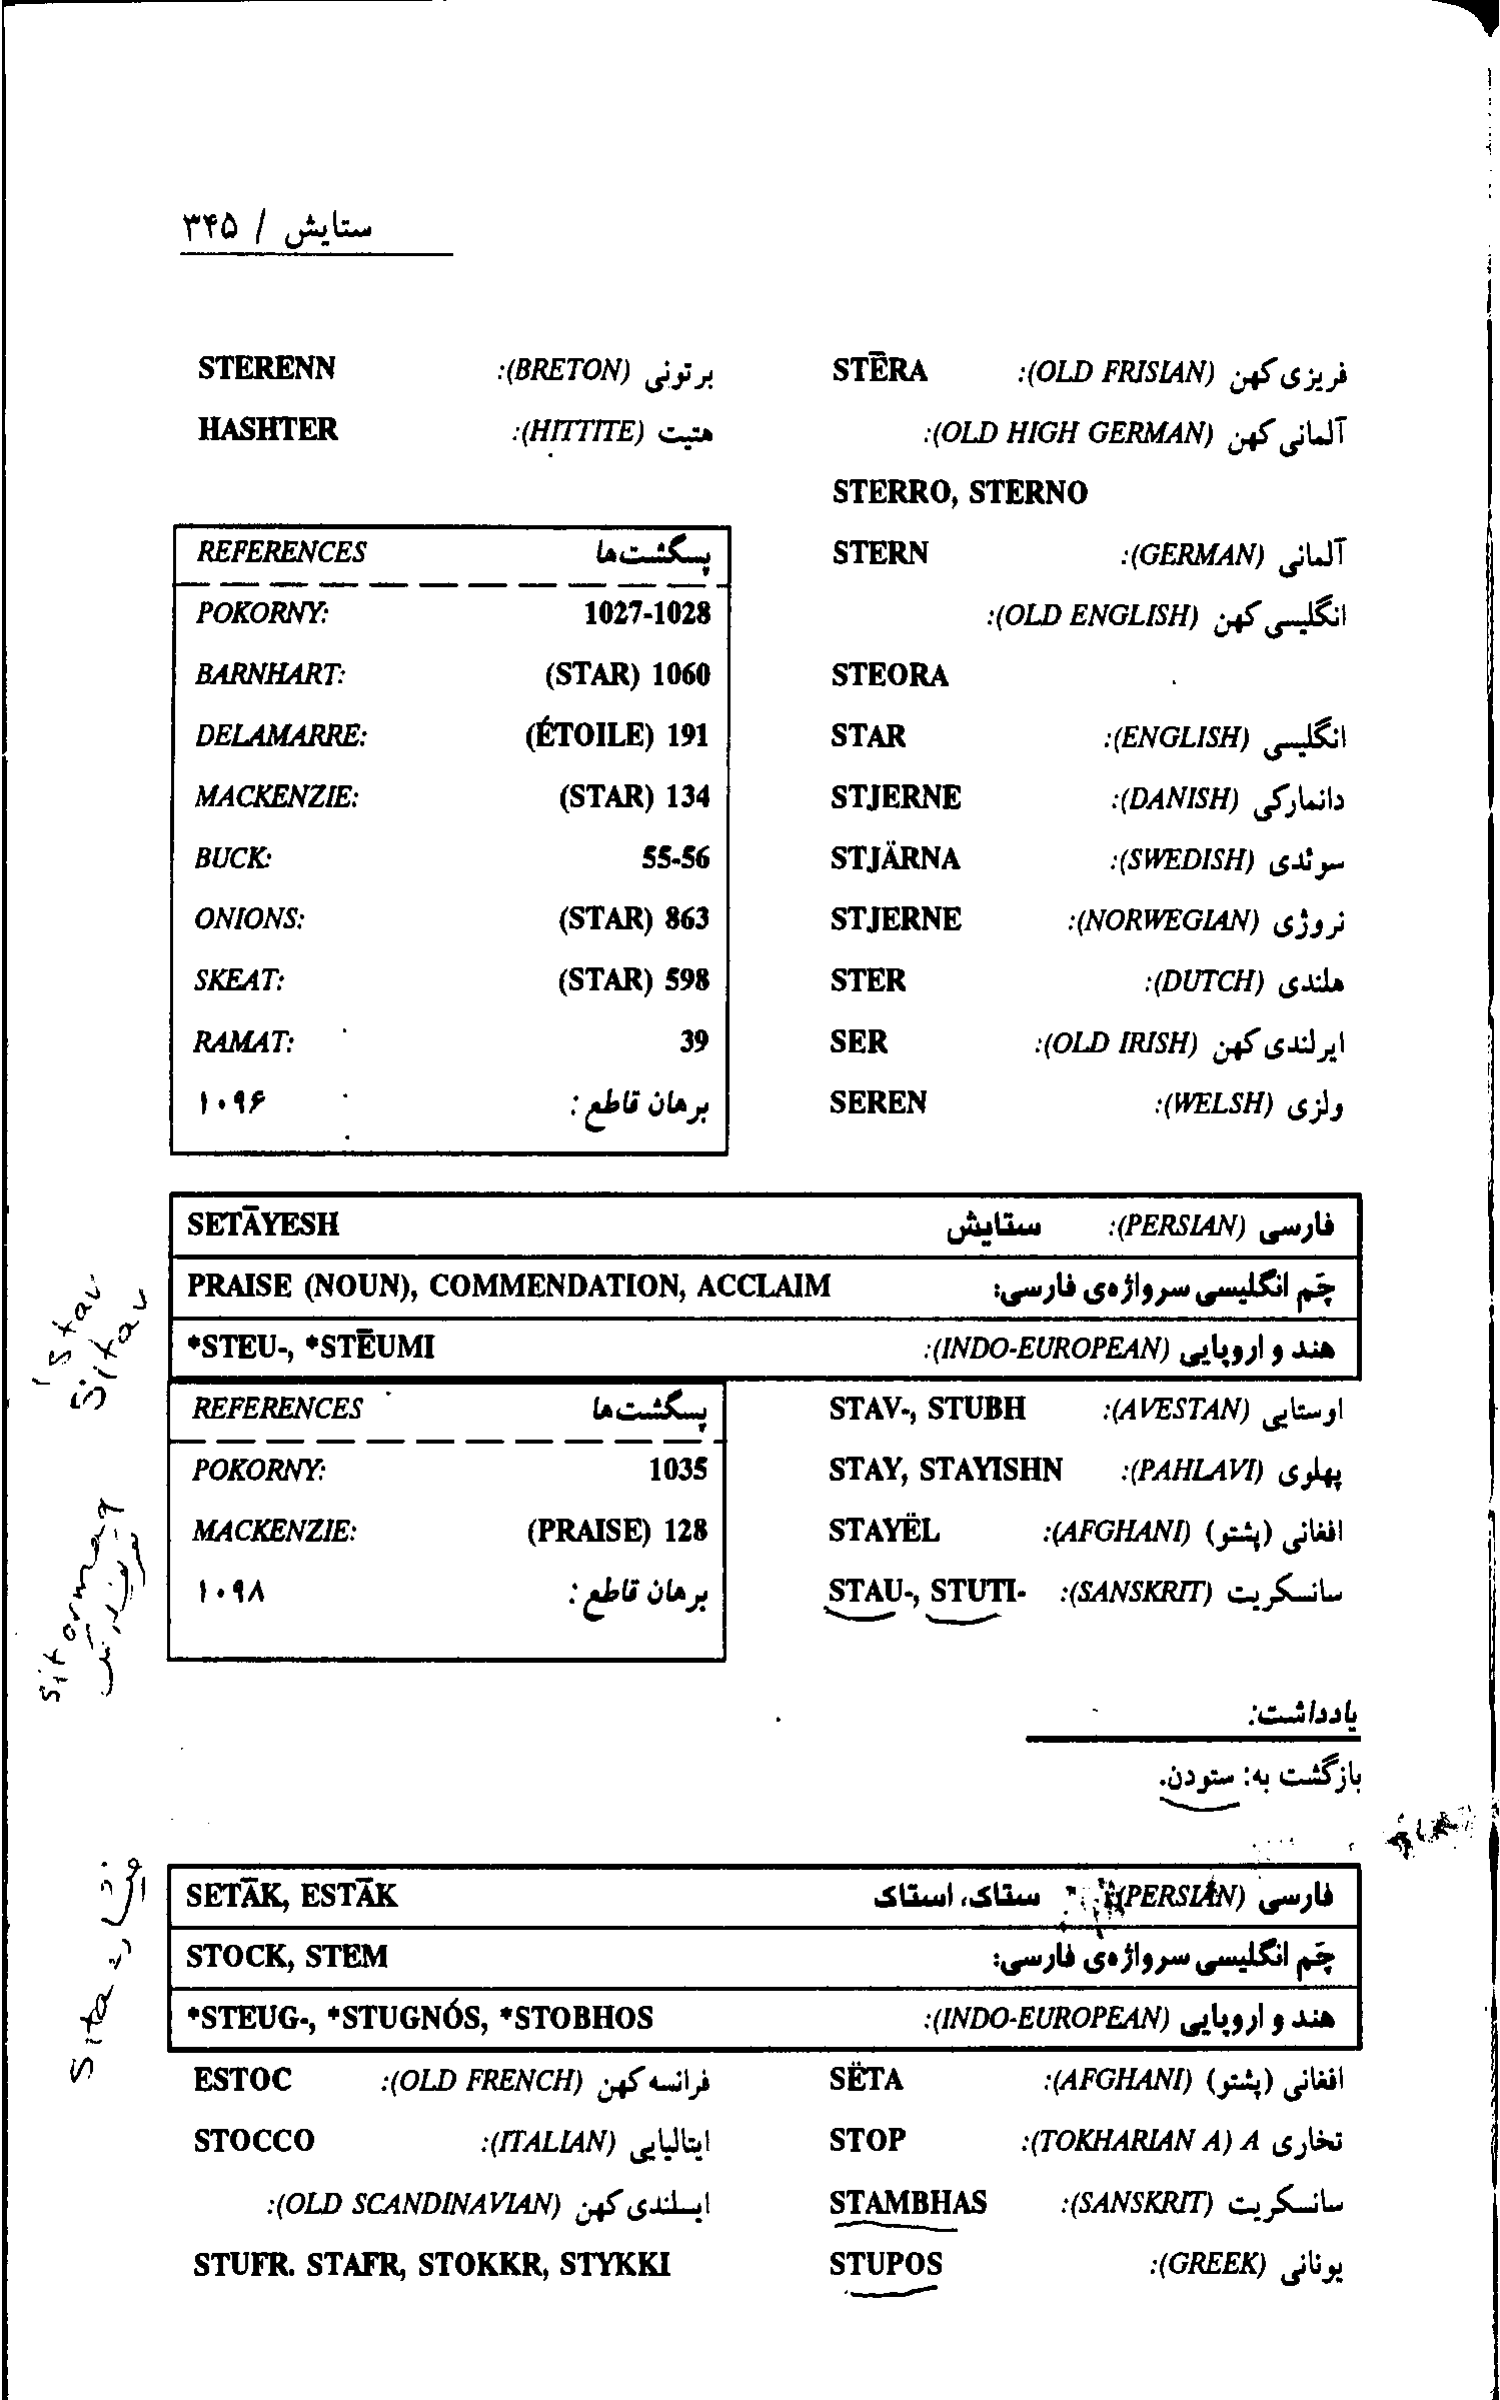 ستایش / ۳۴۵
فریزی کهن (OLD FRISIAN): STĒRA
آلمانی کهن (OLD HIGH GERMAN):
STERRO, STERNO
آلمانی (GERMAN): STERN
انگلیسی کهن (OLD ENGLISH):
STEORA
انگلیسی (ENGLISH): STAR
دانمارکی (DANISH): STJERNE
سوئدی (SWEDISH): STJÄRNA
نروژی (NORWEGIAN): STJERNE
هلندی (DUTCH): STER
ایرلندی کهن (OLD IRISH): SER
ولزی (WELSH): SEREN
برتونی (BRETON): STERENN
هتیت (HITTITE): HASHTER
پسگشت‌ها REFERENCES
POKORNY: 1027-1028
BARNHART: (STAR) 1060
DELAMARRE: (ÉTOILE) 191
MACKENZIE: (STAR) 134
BUCK: 55-56
ONIONS: (STAR) 863
SKEAT: (STAR) 598
RAMAT: 39
برهان قاطع: ۱۰۹۶
فارسی (PERSIAN): ستایش SETĀYESH
چَم انگلیسی سرواژه‌ی فارسی: PRAISE (NOUN), COMMENDATION, ACCLAIM
هند و اروپایی (INDO-EUROPEAN): *STEU-, *STĒUMI
اوستایی (AVESTAN): STAV-, STUBH
پهلوی (PAHLAVI): STAY, STAYISHN
افغانی (پشتو) (AFGHANI): STAYËL
سانسکریت (SANSKRIT): STAU-, STUTI-
پسگشت‌ها REFERENCES
POKORNY: 1035
MACKENZIE: (PRAISE) 128
برهان قاطع: ۱۰۹۸
یادداشت:
بازگشت به: ستودن.
فارسی (PERSIAN): ستاک، استاک SETĀK, ESTĀK
چَم انگلیسی سرواژه‌ی فارسی: STOCK, STEM
هند و اروپایی (INDO-EUROPEAN): *STEUG-, *STUGNÓS, *STOBHOS
افغانی (پشتو) (AFGHANI): SËTA
تخاری A (TOKHARIAN A): STOP
سانسکریت (SANSKRIT): STAMBHAS
یونانی (GREEK): STUPOS
فرانسه کهن (OLD FRENCH): ESTOC
ایتالیایی (ITALIAN): STOCCO
ایسلندی کهن (OLD SCANDINAVIAN):
STUFR. STAFR, STOKKR, STYKKI
istav
Sitav
sitormag
Sita